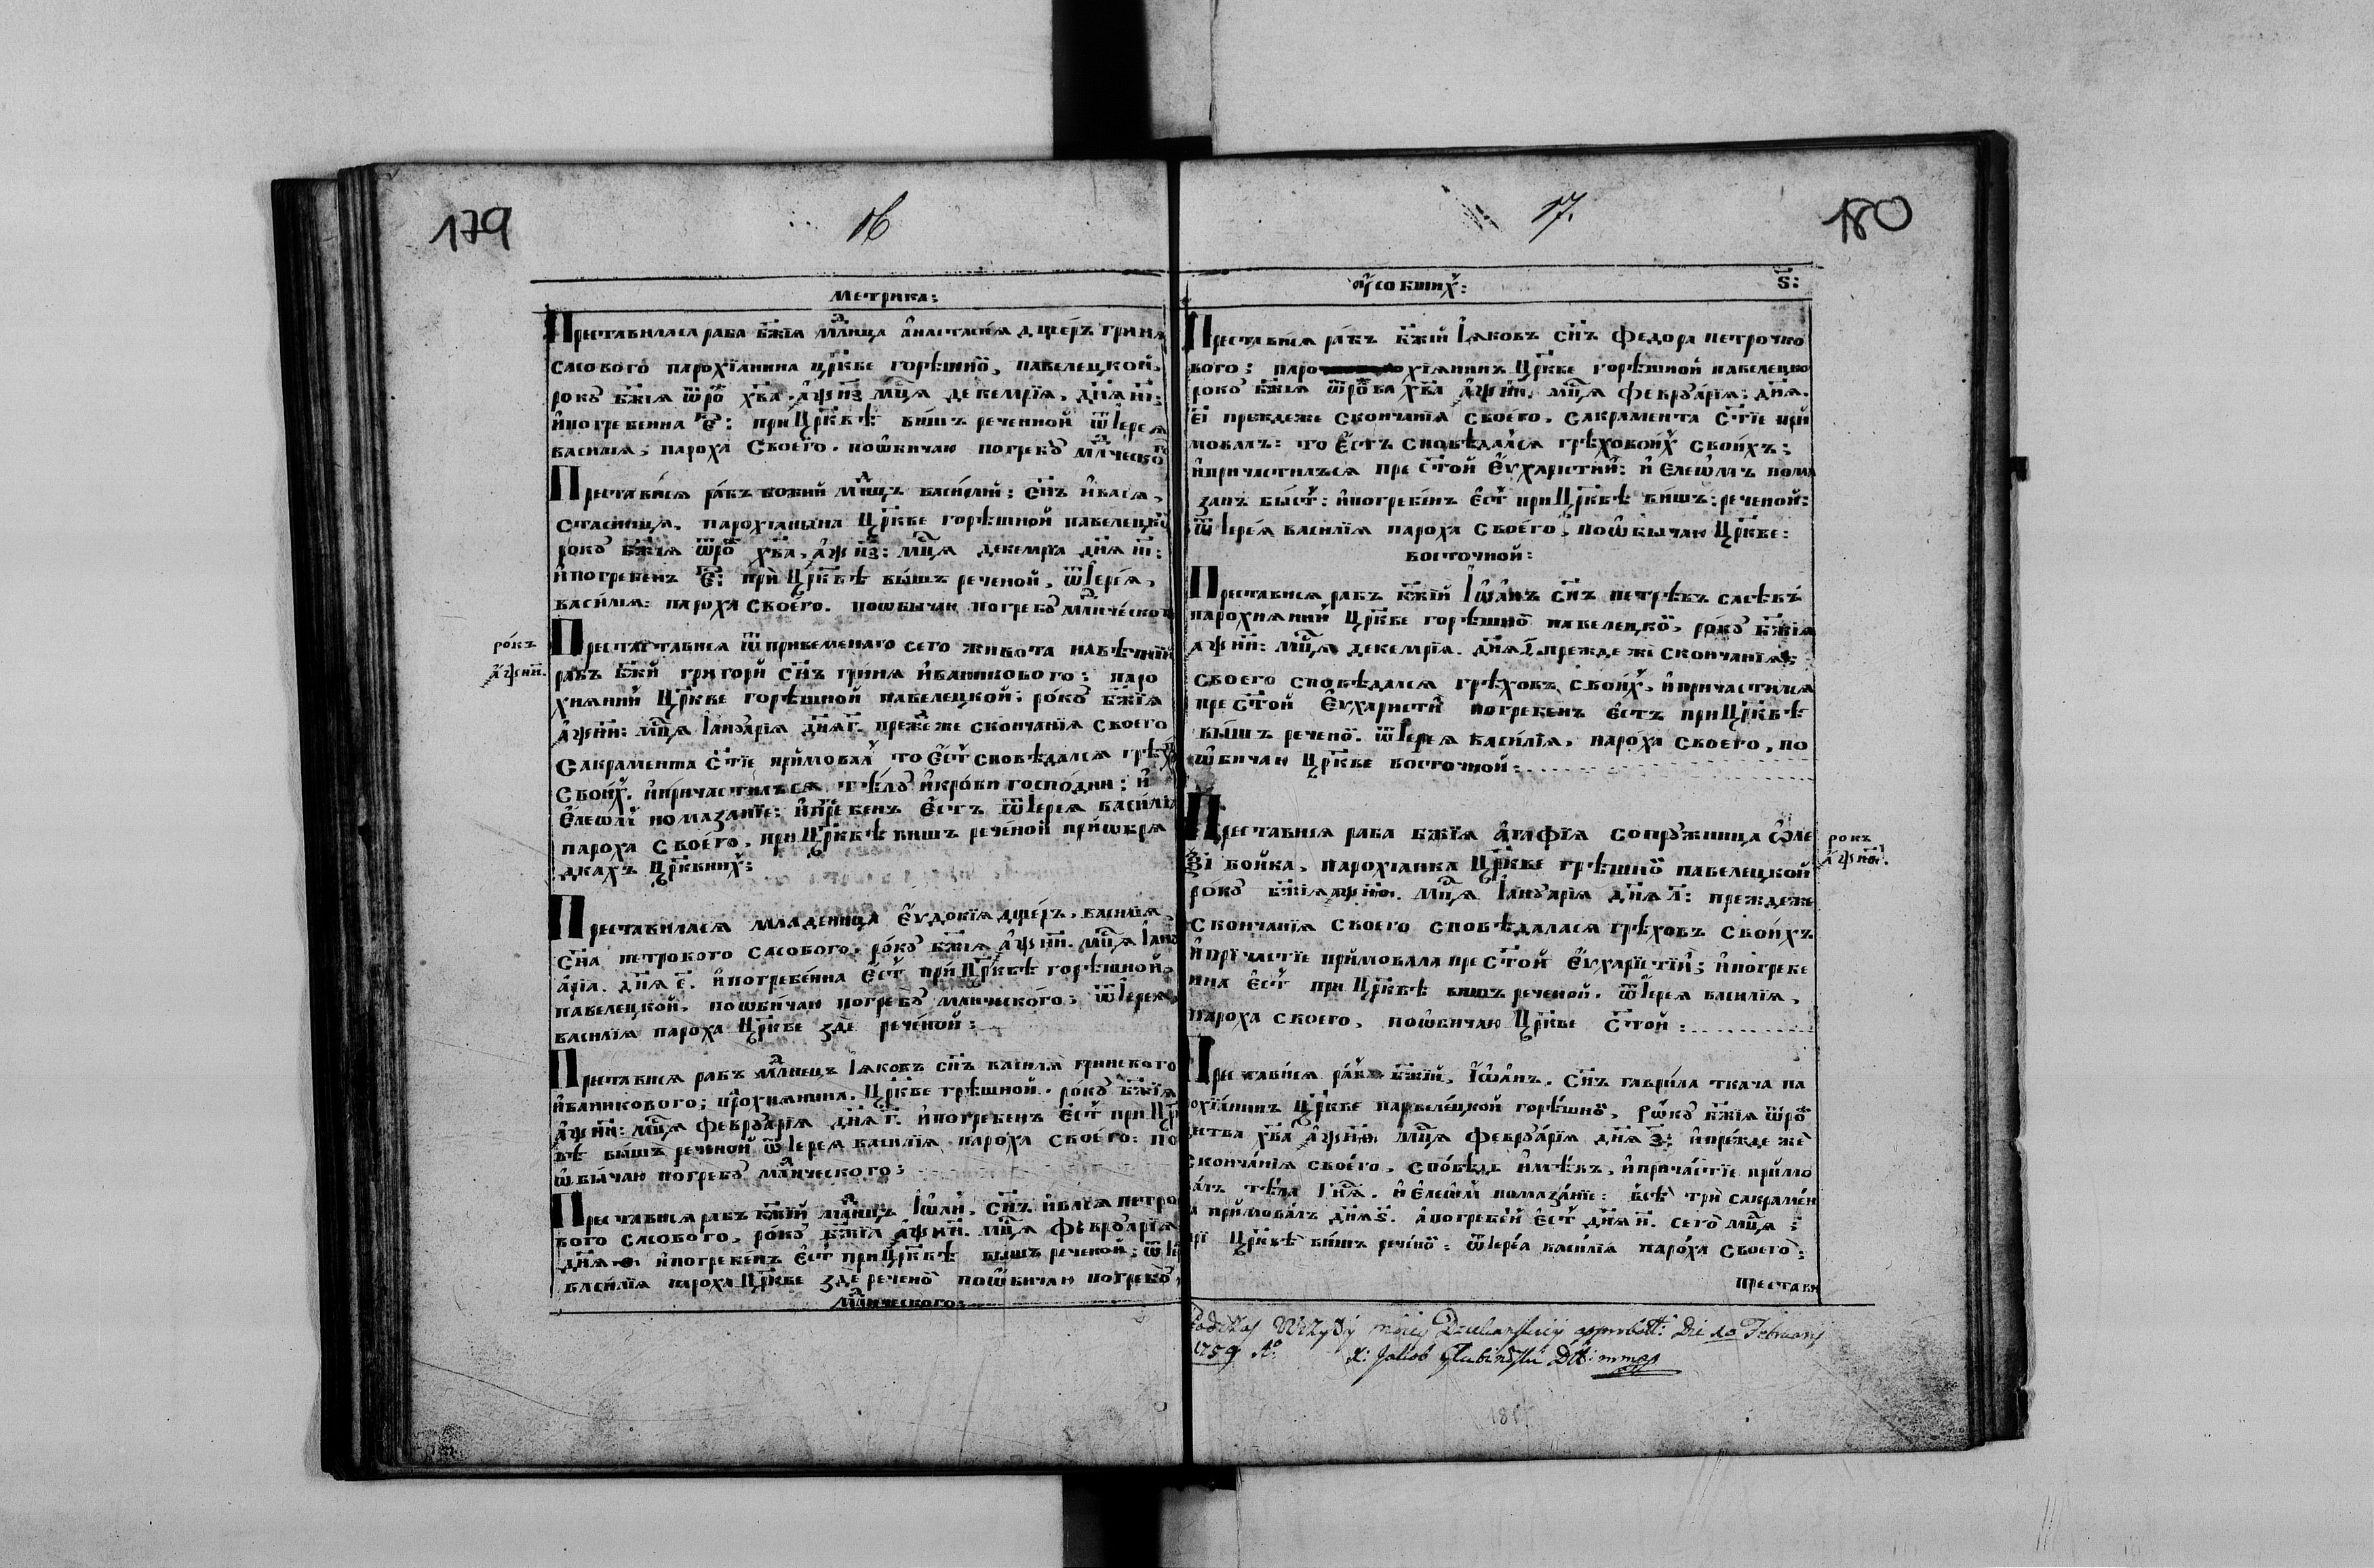 179
16
Метрика:
Преставилася раба Бж҃ія Млⷣница Анастасия дщеръ Гриня
Сасового парохїанина Цр҃кве горѣшнои, павелецкой,
року Бж҃ія ѿ рⷪ Хв҃а, аѱн҃з Мц҃а декемрїя, дн҃я ні:
и погребенна е: при Цр҃квѣ вишъ реченной ѿ Іерея
василія, пароха Своего. по ѡбичаю погребу млⷣческоⷢ
Преставися рабъ божий млⷣнцъ василий; сн҃ъ Ивася,
Спасинця, парохїанына Цр҃кве горѣшной павелецкои
року Бж҃ія ѿ рⷪ Хв҃а, аѱн҃з: Мц҃я декемрїа дн҃я ні:
и погребенъ е: при Цр҃квѣ вышъ реченой, ѿ Іерея,
василия: пароха своего. по ѡбычаю погребу млⷣническоⷢ
рокъ
аѱн҃и.
Престаставися ѿ привеменаго сего живота на вѣчний
рабъ Бж҃й григорй сн҃ъ гриня Иваникового; паро
хияний Цр҃кве горѣшной павелецкой; року Бж҃ія
аѱн҃и: Мц҃я Іануарія дн҃я г҃. прежⷣеже скончанїя своего
Сакрамента Ст҃їе приймовал что Ест сповѣдался грѣхо
своих. и причастилъся, тѣлу и крови господни; и
Елеѡм помазаніе: и погребенъ Естъ ѿ Іерея василия
пароха своего. при Цр҃квѣ вишъ реченой при ѡкря
дкахъ Цр҃квних:
Преставилася младеница Еудокїя дщеръ, василия,
сн҃а петрового сасового, року Бж҃ія аѱн҃и. Мц҃я Іану
арїа. дн҃я е҃. и погребенна Ест при Цр҃квѣ горѣшной,
павелецкой, по ѡбичаю погребу млⷣнического; ѿ Іерея,
василїя пароха Цр҃кве зде реченой:
Преставися рабъ млⷣнецъ Іаковъ сн҃ъ василя гринєвого
Иваникового; парохиянина. Цр҃кве грѣшной. року Бж҃ія
аѱн҃и: Мц҃я февруарїя дн҃я г҃. и погребенъ Ест при Цр҃к
вѣ вышъ речнной ѿ Іерея василїя пароха своего: по
ѡбычаю погребу млⷣнического:
Преставися рабъ Бж҃ий млⷣнцъ Іѡан. сн҃ъ Ивася петро
вого сасового, року Бж҃ія аѱн҃и. Мц҃я февруарїя
дн҃я и погребенъ Ест при Цр҃квѣ вышъ реченой; ѿ Іе
василїя пароха Цр҃кве зде речено по ѡбичаю погребу,
млⷣнического:
17.
180
усопших:
ѕ҃:
Преставися рабъ Бж҃ий Іаковъ сн҃ъ федора петрочко
вого; паро хїянинъ Цр҃кве горѣшной павелецко
року Бж҃ія ѿ рⷪва Хв҃а аѱн҃и. Мц҃я февруарїя: дн҃я.
еі преждеже скончанїя своего. Сакрамента Ст҃їе прй
мовалъ: то Естъ сповѣдался грѣховоих своихъ;
и причастилъся пре ст҃ой Еухаристий: и Елеѡмъ пома
занъ быст: и погребенъ Ест при Цр҃квѣ вишъ: реченой:
ѿ Іерея василїя пароха своего, по ѡбычаю Цр҃кве:
восточной:
Преставися рабъ Бж҃ий Іѡанъ сн҃ъ петрѣвъ сасѣвъ
парохияний Цр҃кве горѣшно павелецко, року Бж҃ія
аѱн҃и: Мц҃я декемрїя. дн҃я прежде же скончанїя:
своего сповѣдался грѣховъ своих, и причастился
пре ст҃ой Еухаристи погребенъ Естъ при Цр҃квѣ
вышъ речено. ѿ Іерея василїя, пароха своего, по
ѡбичаю Цр҃кве восточной:
рокъ
аѱн҃ѳ.
Преставися раба Бж҃ія Агафїя сопружница Ѡле
ѯі бойка, парохїанка Цр҃кве грѣшно павелецкой
року Бж҃ія аѱн҃ѳ. Мц҃я Іануарїя дн҃я л҃: преждеже
скончанїя своего сповѣдалася грѣховъ своихъ
и прїчастїе приймовала пре ст҃ой Еухарїстїй; и погребе
нна Ест при Цр҃квѣ вишъ реченой. ѿ Іерея василїя,
пароха своего, по ѡбичаю Цр҃кве Ст҃ой:
Преставися рабъ Бж҃ий, Іѡанъ. сн҃ъ гаврила ткача па
рохїанинъ Цр҃кве павелецкой горѣшно, рѡку Бж҃ія ѿ рⷪ
жества Хв҃а аѱн҃ѳ Мц҃я февруарїя дн҃я з҃: и прежде же
скончанїя своего, сповѣдь имѣвъ, и причастїе приймо
валъ тѣла Гн҃я. и Елеѡм помазанїе: всѣ три сакрамен
а приймовалъ дн҃я ѕ҃. а погребен Ест дн҃я и҃. сего Мц҃я;
прі Цр҃квѣ вишъ речено: ѿ Іерея василїя пароха своего:
престави
Podczas Wizyty moiey Dziekanskiey approbatt: Die 10 February
1759 A°. X: Jakób Głubiński Dź: mmpp
181